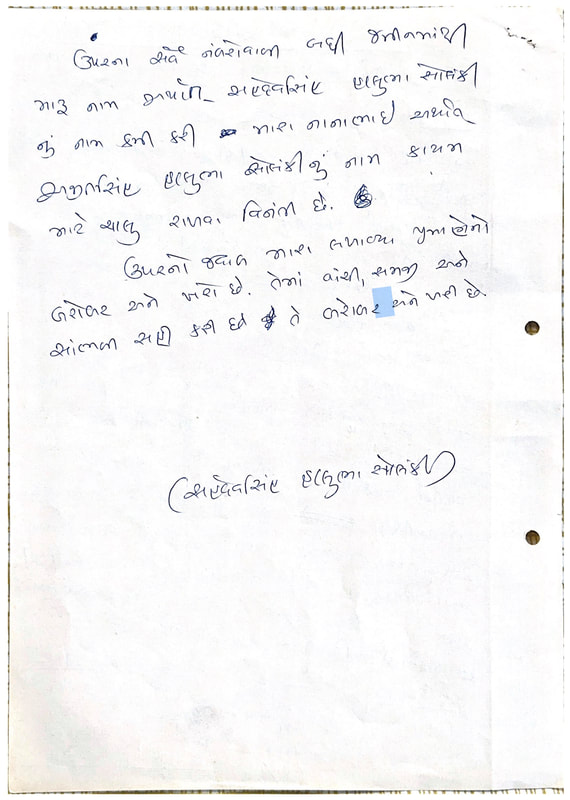 ઉપરના સર્વે નંબરોવાળી બધી જમીનમાંથી
મારૂ નામ અર્થાત સહદેવસિંહ હાલુભા સોલંકી
નું નામ કમી કરી મારા નાનાભાઈ અર્થાત
અજીતસિંહ હાલુભા સોલંકીનું નામ કાયમ
માટે ચાલુ રાખવા વિનંતી છે.
ઉપરનો જવાબ મારા લખાવ્યા મુજબનો
બરોબર અને ખરો છે. તેમાં વાંચી, સમજી અને
સાંભળી સહી કરી છે તે બરોબર અને ખરી છે.
(સહદેવસિંહ હાલુભા સોલંકી)